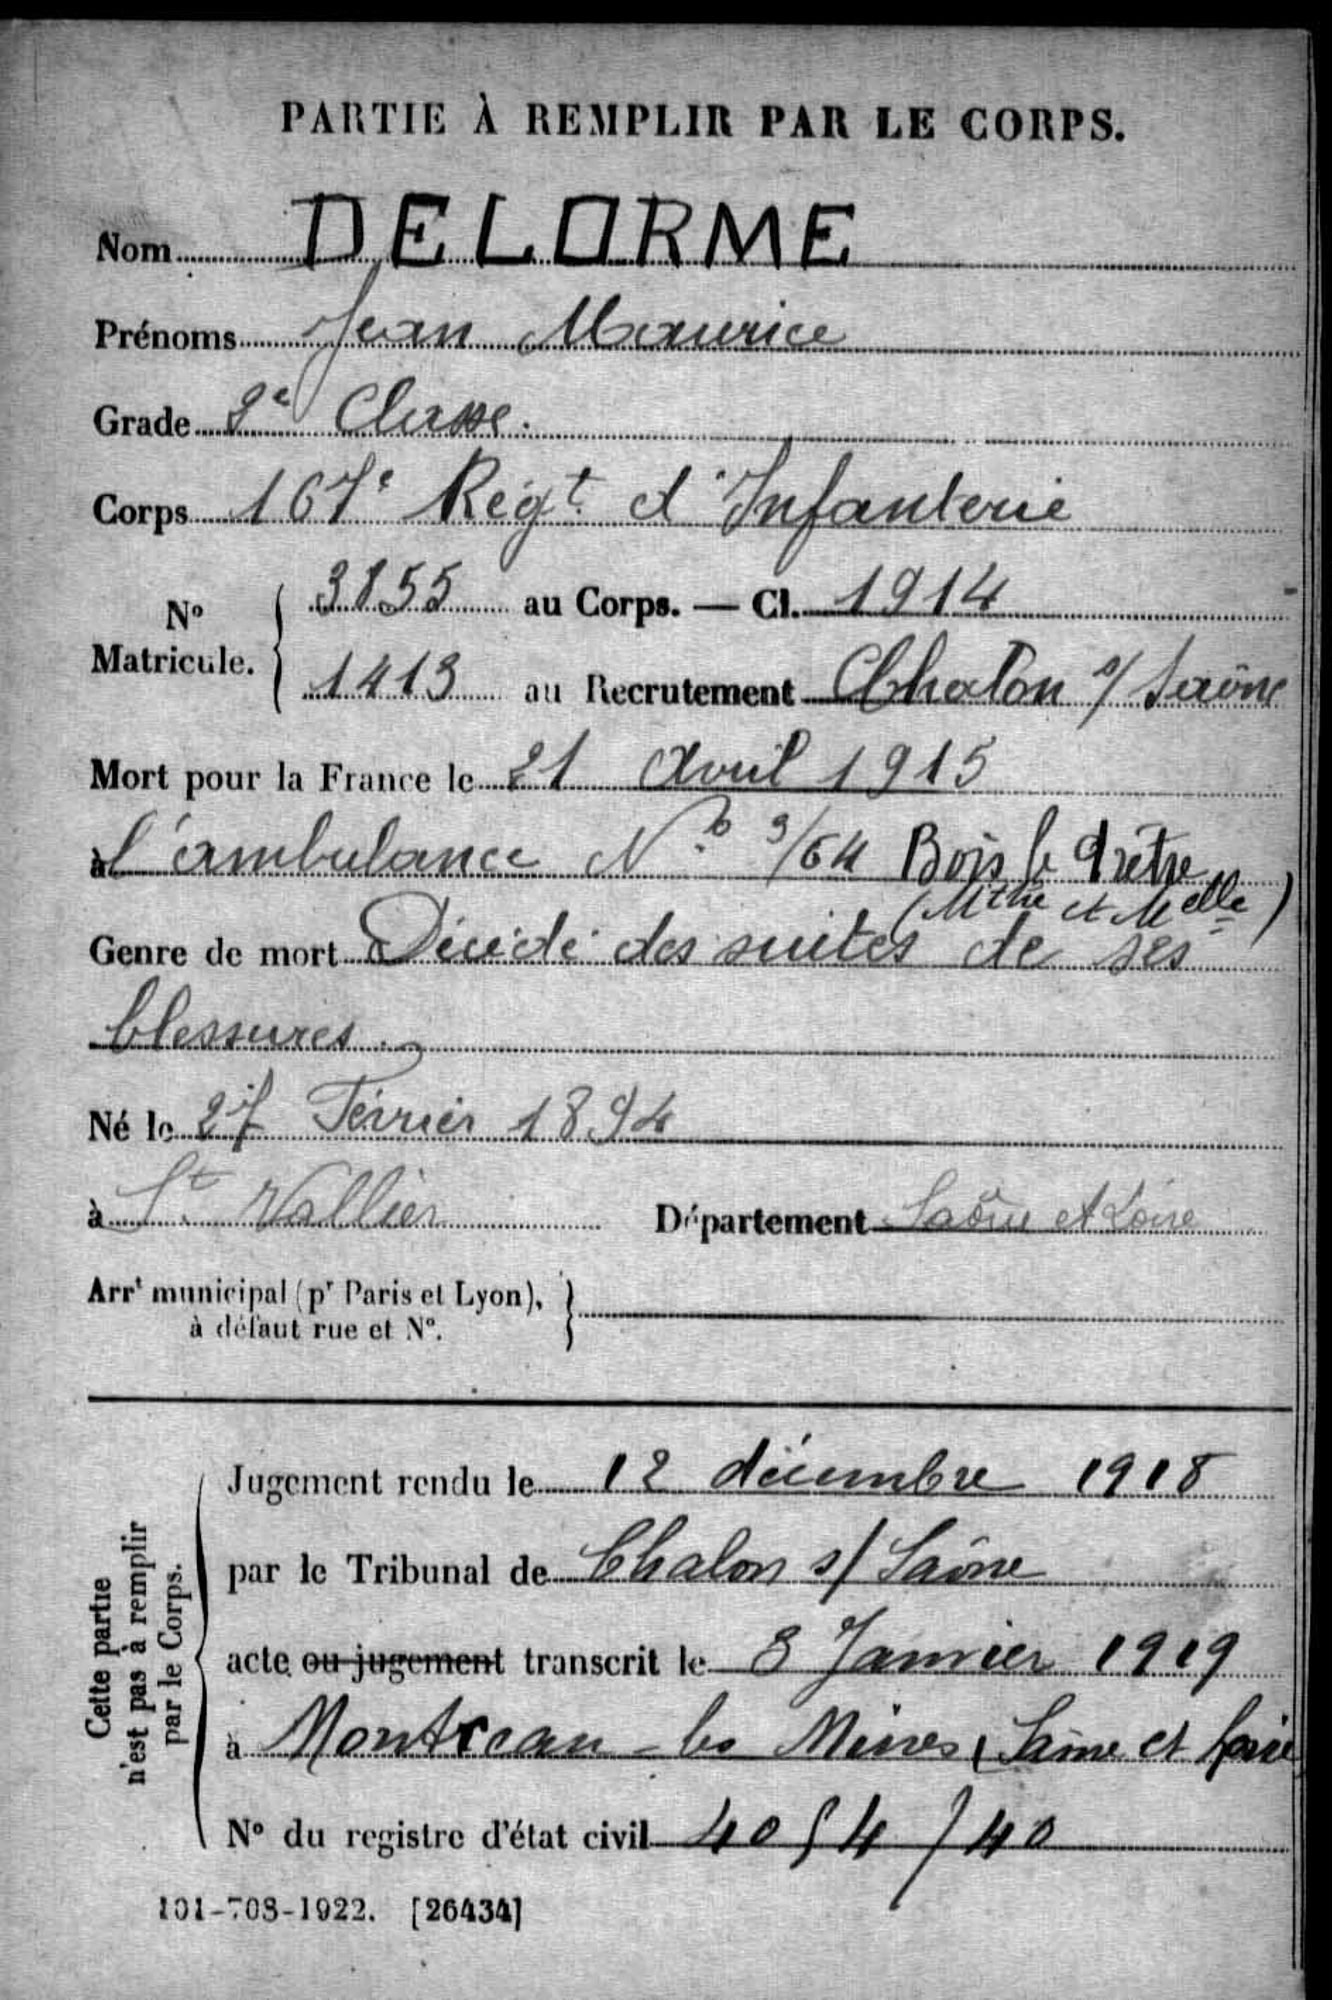 PARTIE À REMPLIR PAR LE CORPS.
Nom DELORME
Prénoms Jean Maurice
Grade 2e Classe.
Corps 167e Régt d'Infanterie
No Matricule. 3855 au Corps. — Cl. 1914
1413 au Recrutement Chalon s/ Saône
Mort pour la France le 21 Avril 1915
à l'ambulance No 3/64 Bois le Prêtre
(Mthe et Melle)
Genre de mort Décédé des suites de ses
blessures.
Né le 27 Février 1894
à St Vallier Département Saône et Loire
Arrt municipal (pr Paris et Lyon),
à défaut rue et No.
Cette partie
n'est pas à remplir
par le Corps.
Jugement rendu le 12 décembre 1918
par le Tribunal de Chalon s/ Saône
acte ou jugement transcrit le 8 Janvier 1919
à Montceau-les Mines, Saône et Loire
No du registre d'état civil
101-708-1922. [26434]